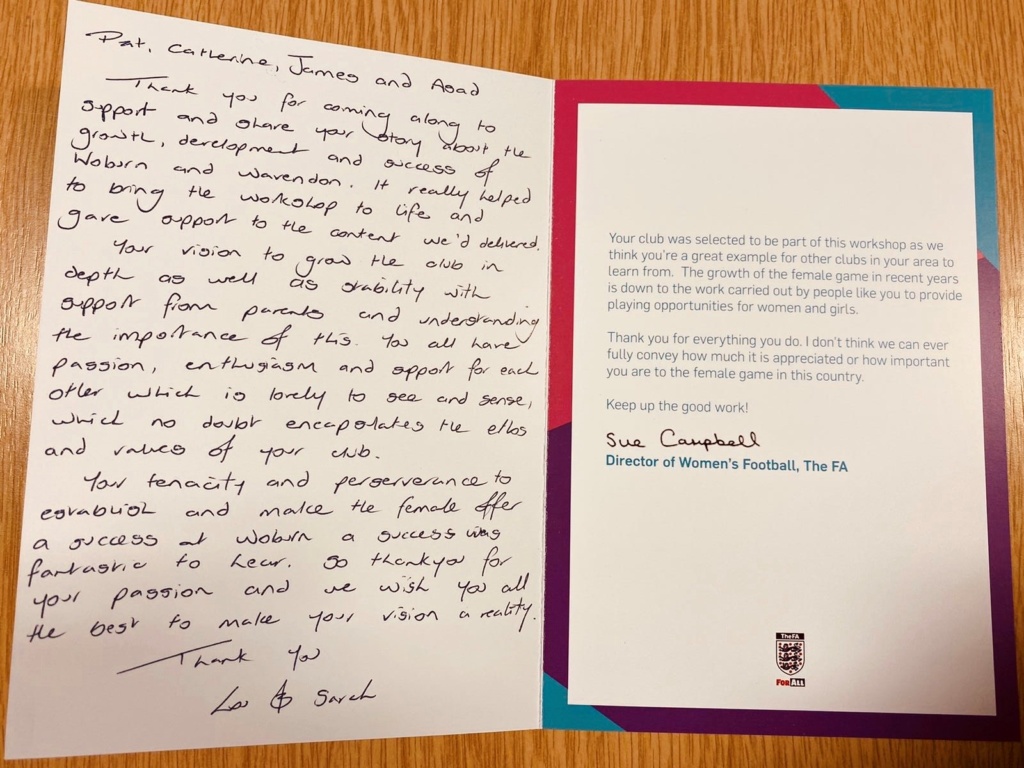 Pat, Catherine, James and Asad
Thank you for coming along to
support and share your story about the
growth, development and success of
Woburn and Wavendon. It really helped
to bring the workshop to life and
gave support to the content we'd delivered.
Your vision to grow the club in
depth as well as stability with
support from parents and understanding
the importance of this. You all have
passion, enthusiasm and support for each
other which is lovely to see and sense,
which no doubt encapsulates the ethos
and values of your club.
Your tenacity and perserverance to
establish and make the female offer
a success at Woburn a success was
fantastic to hear. So thankyou for
your passion and we wish you all
the best to make your vision a reality.
Thank You
& Sarah
Your club was selected to be part of this workshop as we
think you're a great example for other clubs in your area to
learn from. The growth of the female game in recent years
is down to the work carried out by people like you to provide
playing opportunities for women and girls.
Thank you for everything you do. I don't think we can ever
fully convey how much it is appreciated or how important
you are to the female game in this country.
Keep up the good work!
Sue Campbell
Director of Women's Football, The FA
TheFA
FORALL